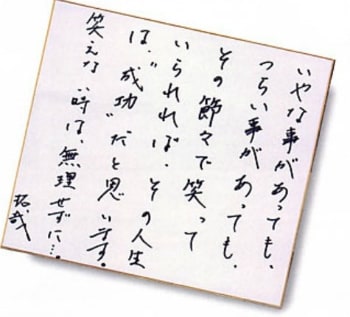 いやな事があっても、
つらい事があっても、
その節々で笑って
いられれば、その人生
は、“成功”だと思います。
笑えない時は、無理せずに…。
拓哉